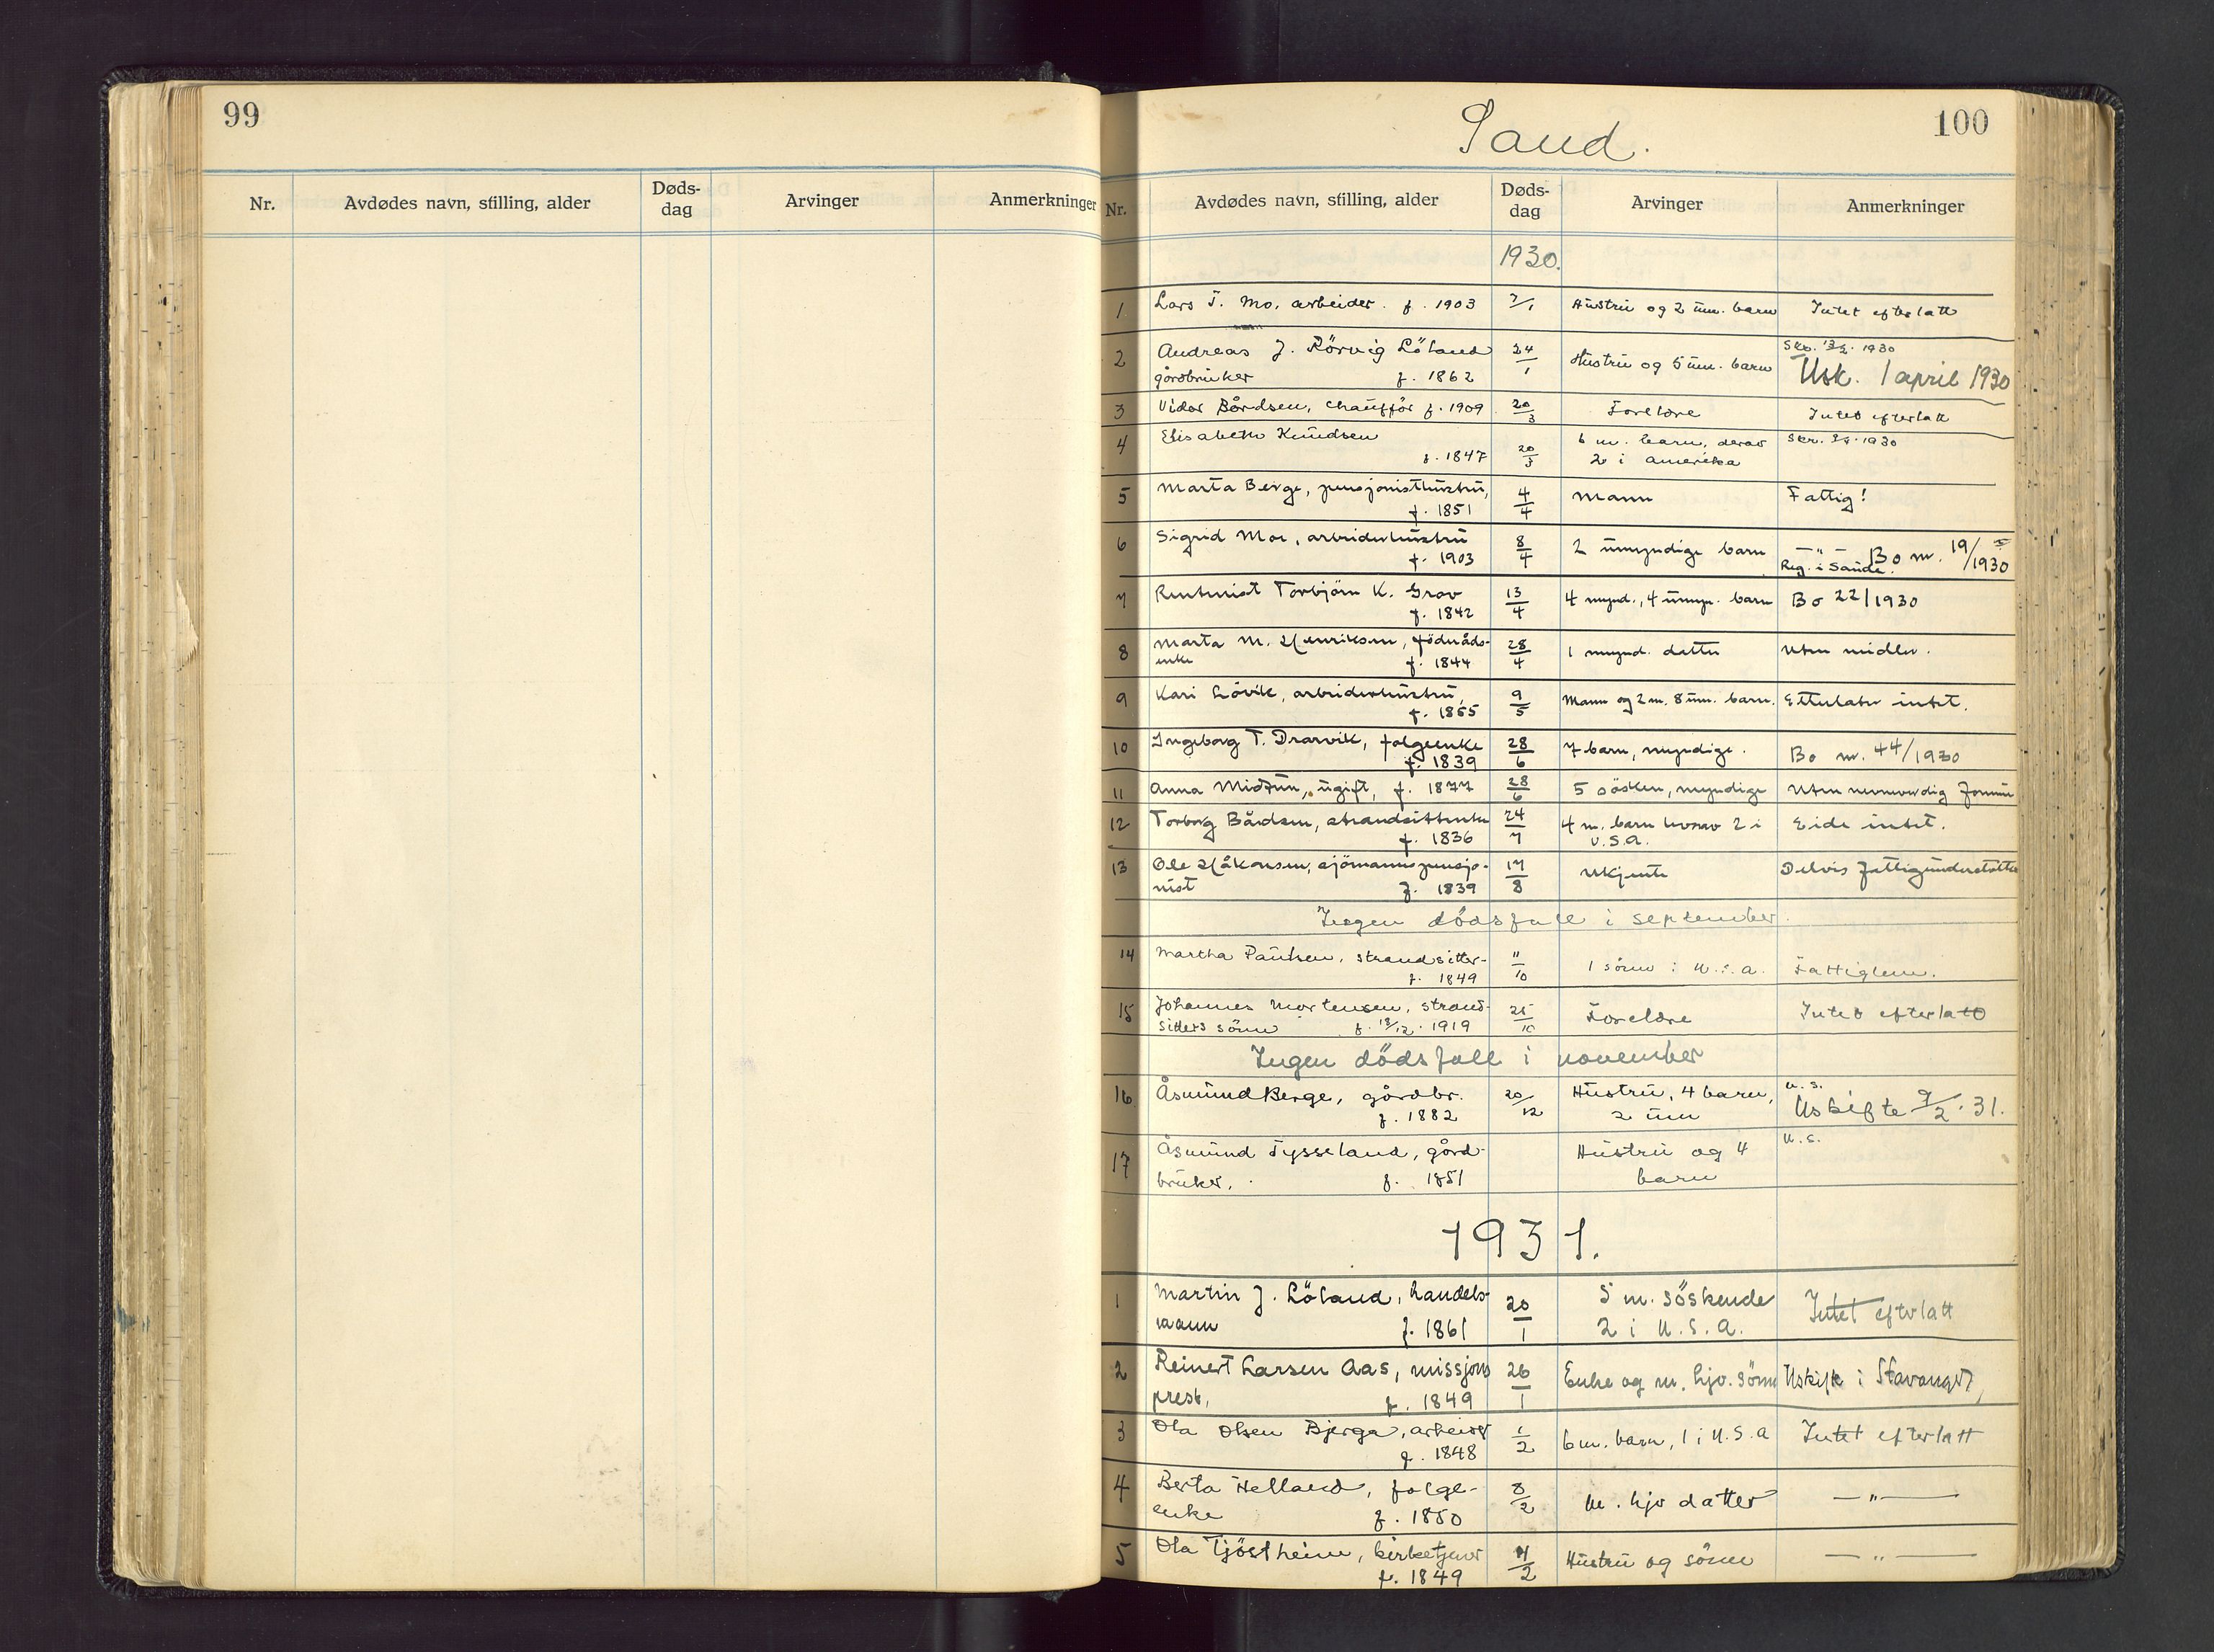 99
Nr. Avdødes navn, stilling, alder Døds-dag Arvinger Anmerkninger
100
Sand.
Nr. Avdødes navn, stilling, alder Døds-dag Arvinger Anmerkninger
1930.
1 Lars T. Mo, arbeider. f. 1903 7/1 Hustru og 2 um. barn Intet efterlatt
2 Andreas J. Rörvig Löland 24/1 Hustru og 5 um. barn Skr. 13/2. 1930
gårdbruker f. 1862 Usk. 1 april 1930
3 Vidar Bårdsen, chaufför f. 1909 20/3 Foreldre Intet efterlatt
4 Elisabeth Knudsen 20/3 6 m. barn, derav Skr. 1930
f. 1847 2 i amerika
5 Marta Berge, pensjonisthustru, 4/4 Mann Fattig!
f. 1851
6 Sigrid Moe, arbeiderhustru 8/4 2 umyndige barn — " — Bo nr. 19/1930
f. 1903 Reg. i Saude.
7 Rentenist Torbjörn K. Grov 13/4 4 mynd., 4 umyn. barn Bo 22/1930
f. 1842
8 Marta M. Henriksen, föderåds- 28/4 1 mynd. datter Uten midler.
enke f. 1844
9 Kari Lövik, arbeiderhustru, 9/5 Mann og 2 m. 8 um. barn. Etterlater intet.
f. 1865
10 Ingeborg T. Drarvik, folgeenke 28/6 7 barn, myndige. Bo nr. 44/1930
f. 1839
11 Anna Midtun, ugift, f. 1877 28/6 5 sösken, myndige Uten nevneverdig formue
12 Torborg Bårdsen, strandsitterenke 24/7 4 m. barn hvorav 2 i Eide intet.
f. 1836 U.S.A.
13 Ole Håkonsen, sjömannspensjo- 17/8 Ukjente Delvis fattigunderstöttet
nist f. 1839
Ingen dödsfall i september.
14 Martha Paulsen, strandsitter- 11/10 1 sönn i U.S.A. Fattiglem.
f. 1849
15 Johannes Mortensen, strand- 25/10 Foreldre Intet efterlatt
sitters sönn f. 13/12. 1919
Ingen dödsfall i november
16 Åsmund Berge, gårdbr. 20/12 Hustru, 4 barn, U.S.
f. 1882 2 um Uskifte 9/2. 31.
17 Åsmund Tysseland, gård- Hustru og 4 U.S.
bruker. f. 1851 barn
1931.
1 Martin J. Löland, handels- 20/1 5 m. söskende Intet eftrlatt
mann f. 1861 2 i U.S.A.
2 Reinert Larsen Aas, missjons 26/1 Enke og m. hjv. sönn Uskifte i Stavanger
prest, f. 1849
3 Ola Olsen Bjerga, arbeider 1/2 6 m. barn, 1 i U.S.A Intet efterlatt
f. 1848
4 Berta Helland, folge- 8/2 m. hjv datter — " —
enke f. 1850
5 Ola Tjöstheim, kirketjener 4/2 Hustru og sönn — " —
f. 1849